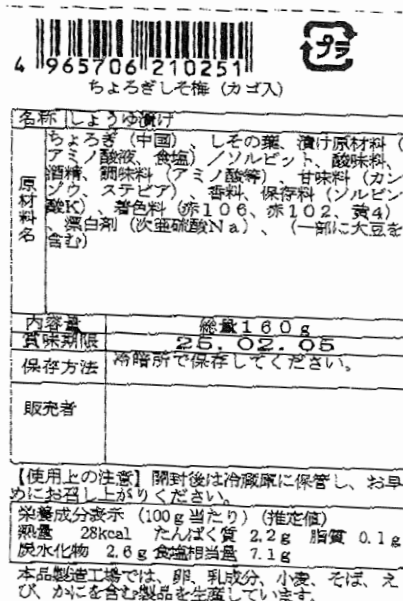 プラ
4 965706 210251
ちょろぎしそ梅（カゴ入）
名称 しょうゆ漬け
原材料名
ちょろぎ（中国）、しその葉、漬け原材料（
アミノ酸液、食塩）／ソルビット、酸味料、
酒精、調味料（アミノ酸等）、甘味料（カン
ゾウ、ステビア）、香料、保存料（ソルビン
酸K）、着色料（赤１０６、赤１０２、黄4）
、漂白剤（次亜硫酸Ｎａ）、（一部に大豆を
含む）
内容量 総量１６０ｇ
賞味期限 25.02.05
保存方法 冷暗所で保存してください。
販売者
【使用上の注意】開封後は冷蔵庫に保管し、お早
めにお召し上がりください。
栄養成分表示（100ｇ当たり）（推定値）
熱量 28kcal たんぱく質 2.2g 脂質 0.1g
炭水化物 2.6g 食塩相当量 7.1g
本品製造工場では、卵、乳成分、小麦、そば、え
び、かにを含む製品を生産しています。